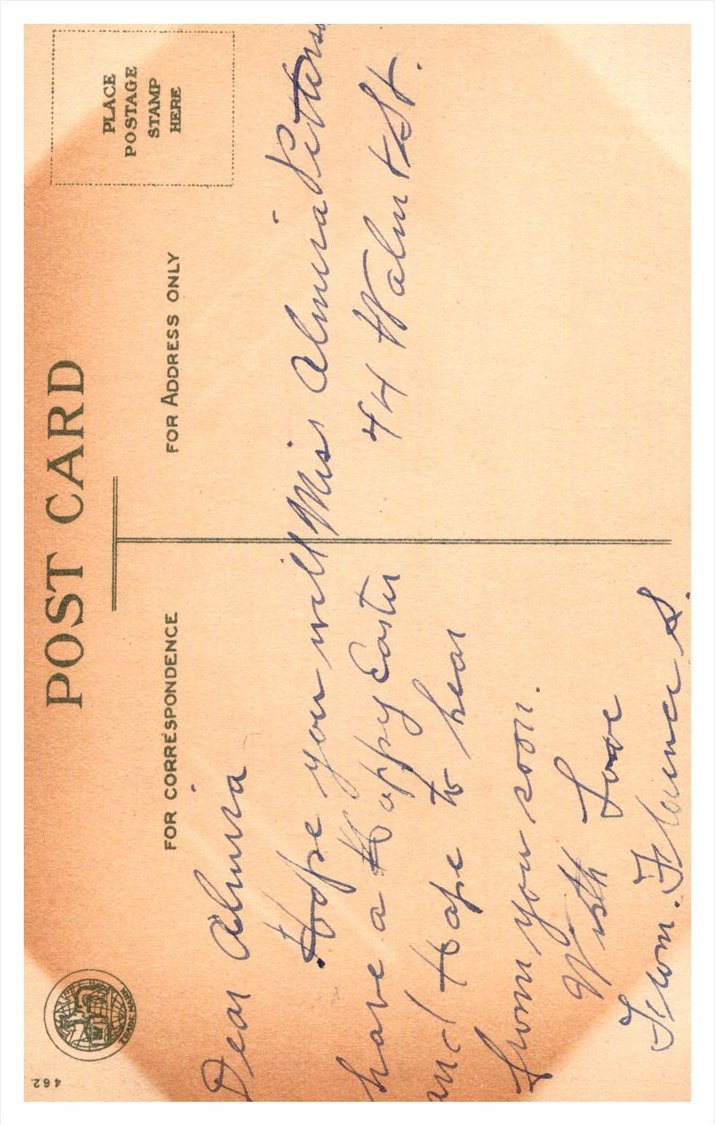 POST CARD
PLACE
POSTAGE
STAMP
HERE
FOR CORRESPONDENCE
FOR ADDRESS ONLY
Dear Almira
Hope you will
have a Happy Easter
and Hope to hear
from you soon.
With Love
From. Florence S.
Miss Almira
44 Walnut St.
462.